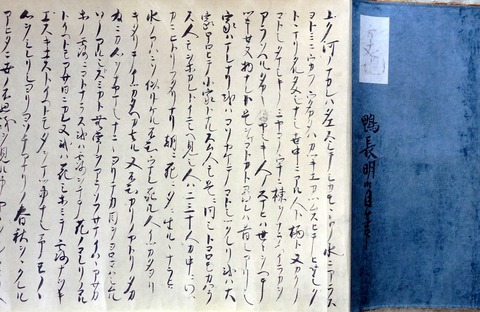 鴨長明自筆
ユク河ノナカレハタエスシテシカモモトノ水ニアラス
ヨトミニウカフウタカタハカツキエカツムスヒテヒサシク
トヽマリタルタメシナシ世中ニアル人ト栖ト又カクノ
コトシタマシキノミヤコノウチニ棟ヲナラヘイラカヲ
アラソヘルタカキイヤシキ人ノスマヒハ世々ヲヘテ
ツキセヌ物ナレト是ヲマコトカト尋レハ昔シアリシ
家ハマレナリ或ハコソヤケテコトシツクレリ或ハ大
家ホロヒテ小家トナルスム人モ是ニ同シトコロモカハラ
ス人モオホカレトイニシヘ見シ人ハ二三十人カ中ニワツ
カニヒトリフタリナリ朝ニ死ニ夕ニ生ルヽナラヒ
水ノアハニソ似リケル不知ウマレ死ル人イツカタヨリ
キタリテイツカタヘカ去ル又不知カリノヤトリタカ
為ニカ心ヲナヤマシナニニヨリテカ目ヲヨロコハシムル
ソノアルシトスミカト無常ヲアラソフサマイハヽアサカ
ホノ露ニコトナラス或ハ露ヲチテ花ノコレリノコル
トイヘトモアサ日ニカレヌ或ハ花シホミテ露ナヲキ
エスキエストイヘトモ夕ヲマツ事ナシ予モノヽ
心ヲシレリシヨリヨソチアマリノ春秋ヲヽクレル
アヒタニ世ノ不思議ヲ見ル事